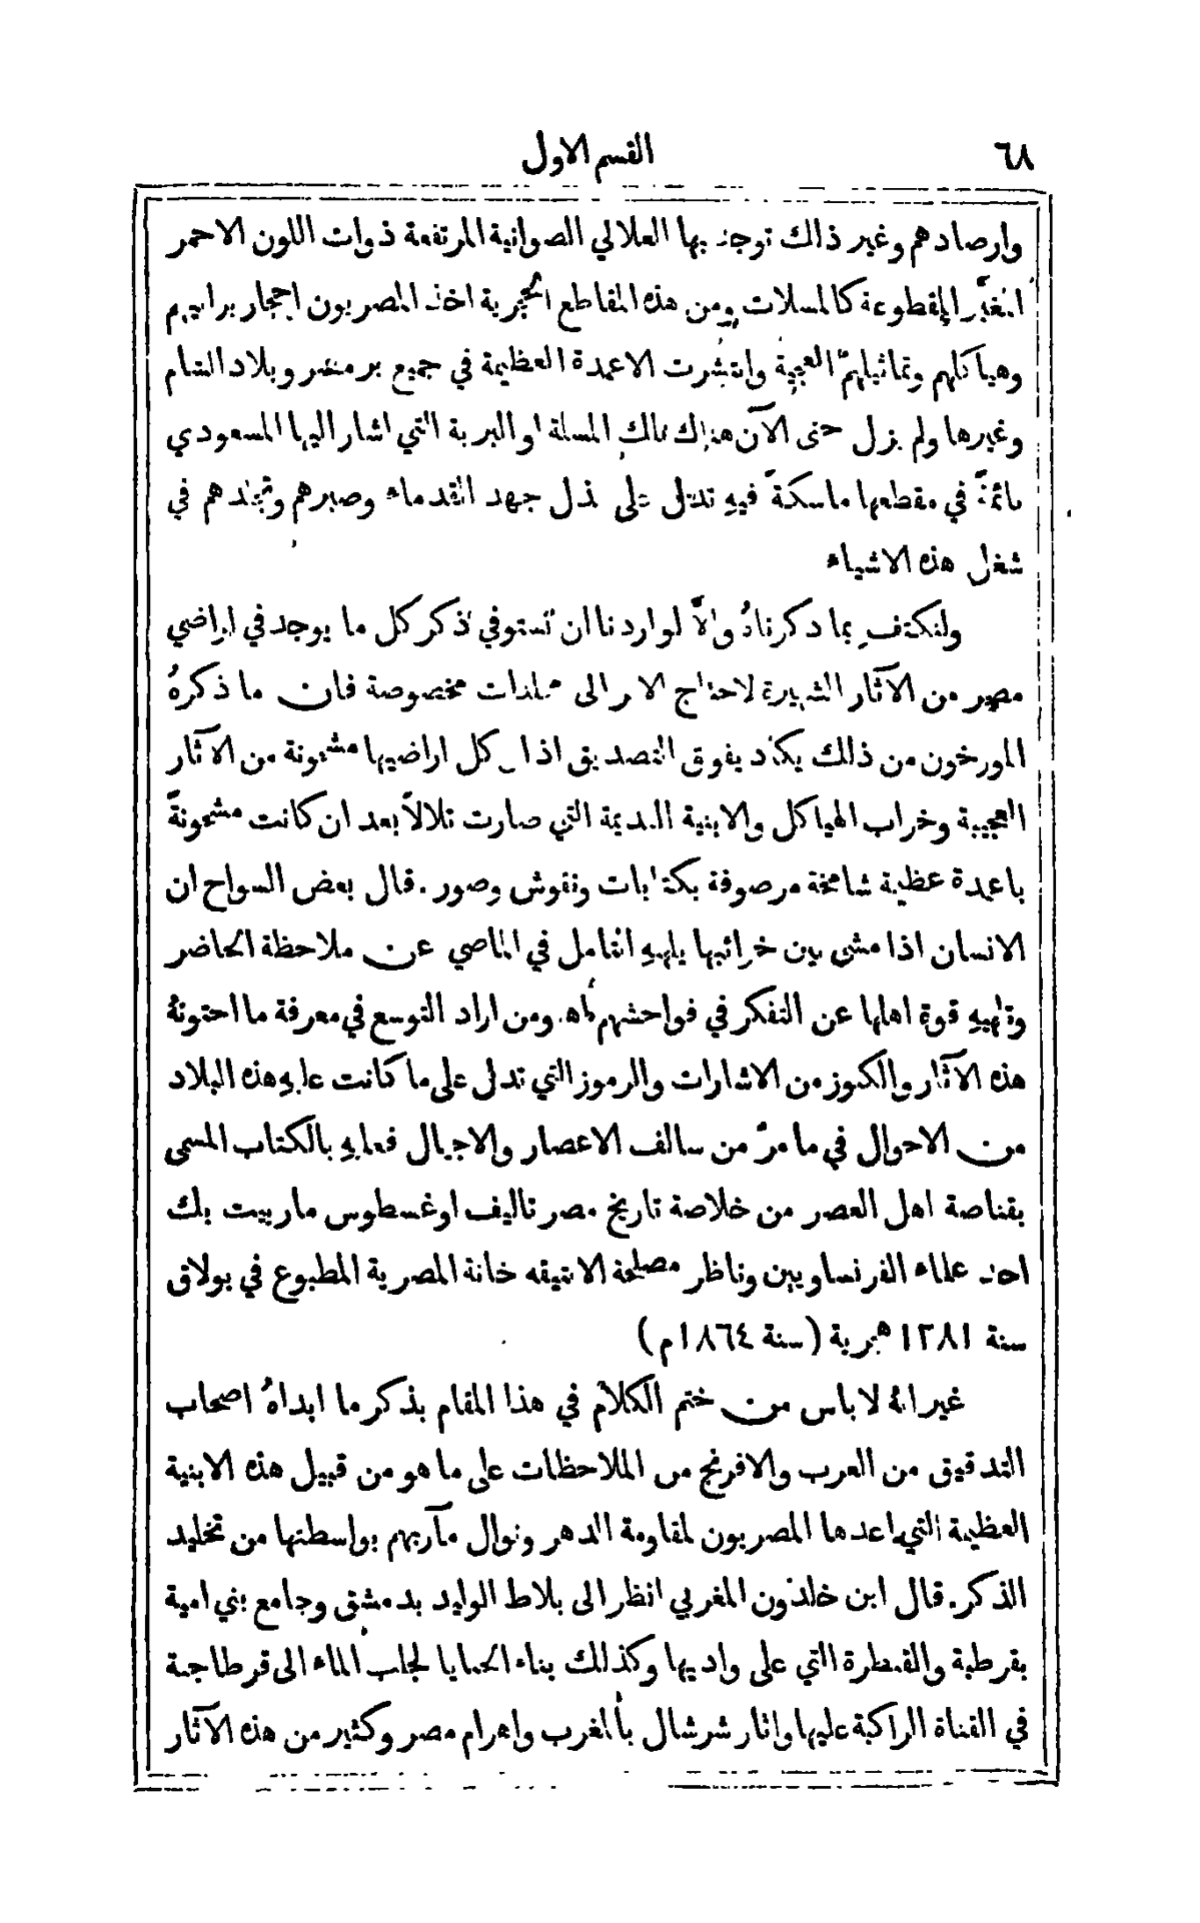 ٦٨ القسم الاول
وارصادهم وغير ذلك توجد بها العلالي الصوانية المرتفعة ذوات اللون الاحمر
المغبَّر المقطوعة كالمسلات ومن هذه المقاطع الحجرية اخذ المصريون احجار برابيهم
وهياكلهم وتماثيلهم العجيبة وانتشرت الاعمدة العظيمة في جميع بر مصر وبلاد الشام
وغيرها ولم يزل حتى الآن هناك تلك المسلة او البربة التي اشار اليها المسعودي
نائمةً في مقطعها ماسكةً فيهِ تدل على بذل جهد القدماء وصبرهم وتجلدهم في
شغل هذه الاشياء
ولنكتفِ بما ذكرناهُ والاَّ لو اردنا ان نستوفي ذكر كل ما يوجد في اراضي
مصر من الآثار الشهيرة لاحتاج الامر الى مجلدات مخصوصة فان ما ذكرهُ
المورخون من ذلك يكاد يفوق التصديق اذا كل اراضيها مشحونة من الآثار
العجيبة وخراب الهياكل والابنية القديمة التي صارت تلالاً بعد ان كانت مشحونةً
باعمدة عظيمة شامخة مرصوفة بكتابات ونقوش وصور. قال بعض السواح ان
الانسان اذا مشى بين خرائبها يلهيهِ التامل في الماضي عن ملاحظة الحاضر
وتلهيهِ قوة اهلها عن التفكر في فواحشهم اه. ومن اراد التوسع في معرفة ما احتوتهُ
هذه الآثار والكنوز من الاشارات والرموز التي تدل على ما كانت عليهِ هذه البلاد
من الاحوال في ما مرَّ من سالف الاعصار والاجيال فعليهِ بالكتاب المسمى
بقناصة اهل العصر من خلاصة تاريخ مصر تاليف اوغسطوس ماربيت بك
احد علماء الفرنساويين وناظر مصلحة الانتيقه خانة المصرية المطبوع في بولاق
سنة ١٢٨١ هجرية (سنة ١٨٦٤م)
غير انهُ لا باس من ختم الكلام في هذا المقام بذكر ما ابداهُ اصحاب
التدقيق من العرب والافرنج من الملاحظات على ما هو من قبيل هذه الابنية
العظيمة التي اعدها المصريون لمقاومة الدهر ونوال مآربهم بواسطتها من تخليد
الذكر. قال ابن خلدون المغربي انظر الى بلاط الوليد بدمشق وجامع بني امية
بقرطبة والقنطرة التي على واديها وكذلك بناء الحنايا لجلب الماء الى قرطاجنة
في القناة الراكبة عليها واثار شرشال بالمغرب واهرام مصر وكثير من هذه الآثار